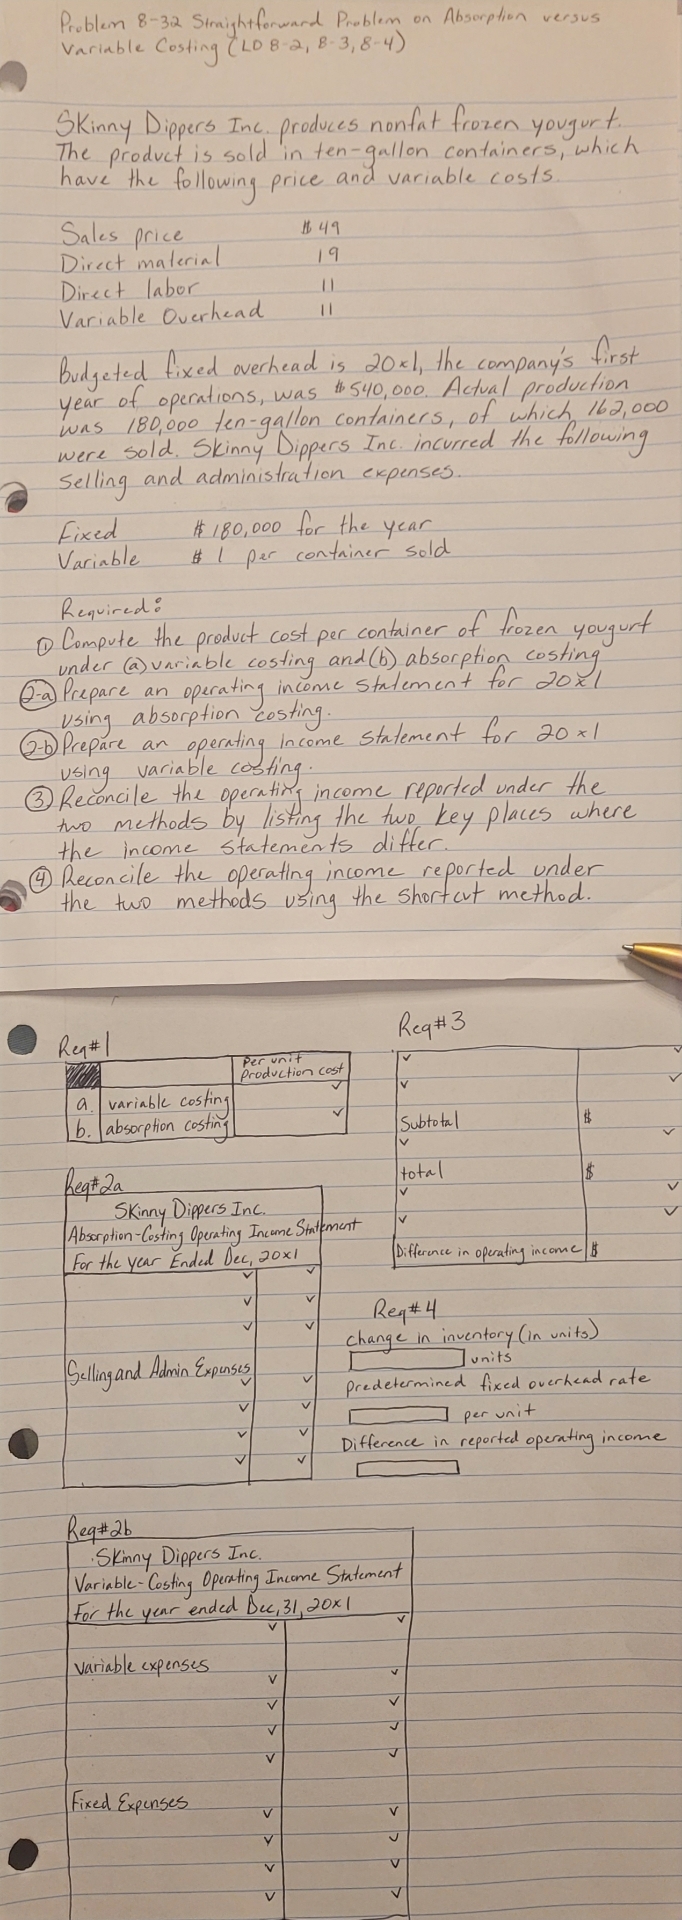 Problem 8-32 Straightforward Problem on Absorption versus
Variable Costing (LO 8-2, 8-3, 8-4)
Skinny Dippers Inc. produces nonfat frozen yougurt.
The product is sold in ten-gallon containers, which
have the following price and variable costs.
Sales price $49
Direct material 19
Direct labor 11
Variable Overhead 11
Budgeted fixed overhead is 20x1, the company's first
year of operations, was $540,000. Actual production
was 180,000 ten-gallon containers, of which 162,000
were sold. Skinny Dippers Inc. incurred the following
selling and administration expenses.
Fixed $180,000 for the year
Variable $1 per container sold
Required:
① Compute the product cost per container of frozen yougurt
under (a) variable costing and (b) absorption costing
2-a Prepare an operating income statement for 20x1
using absorption costing.
2-b Prepare an operating income statement for 20x1
using variable costing.
③ Reconcile the operating income reported under the
two methods by listing the two key places where
the income statements differ.
④ Reconcile the operating income reported under
the two methods using the shortcut method.
Req#1
Per unit
production cost
a. variable costing
b. absorption costing
Req#3
Subtotal $
total $
Difference in operating income $
Req#2a
Skinny Dippers Inc.
Absorption-Costing Operating Income Statement
For the year Ended Dec, 20x1
Selling and Admin Expenses
Req#4
change in inventory (in units)
units
predetermined fixed overhead rate
per unit
Difference in reported operating income
Req#2b
Skinny Dippers Inc.
Variable-Costing Operating Income Statement
For the year ended Dec, 31, 20x1
variable expenses
Fixed Expenses